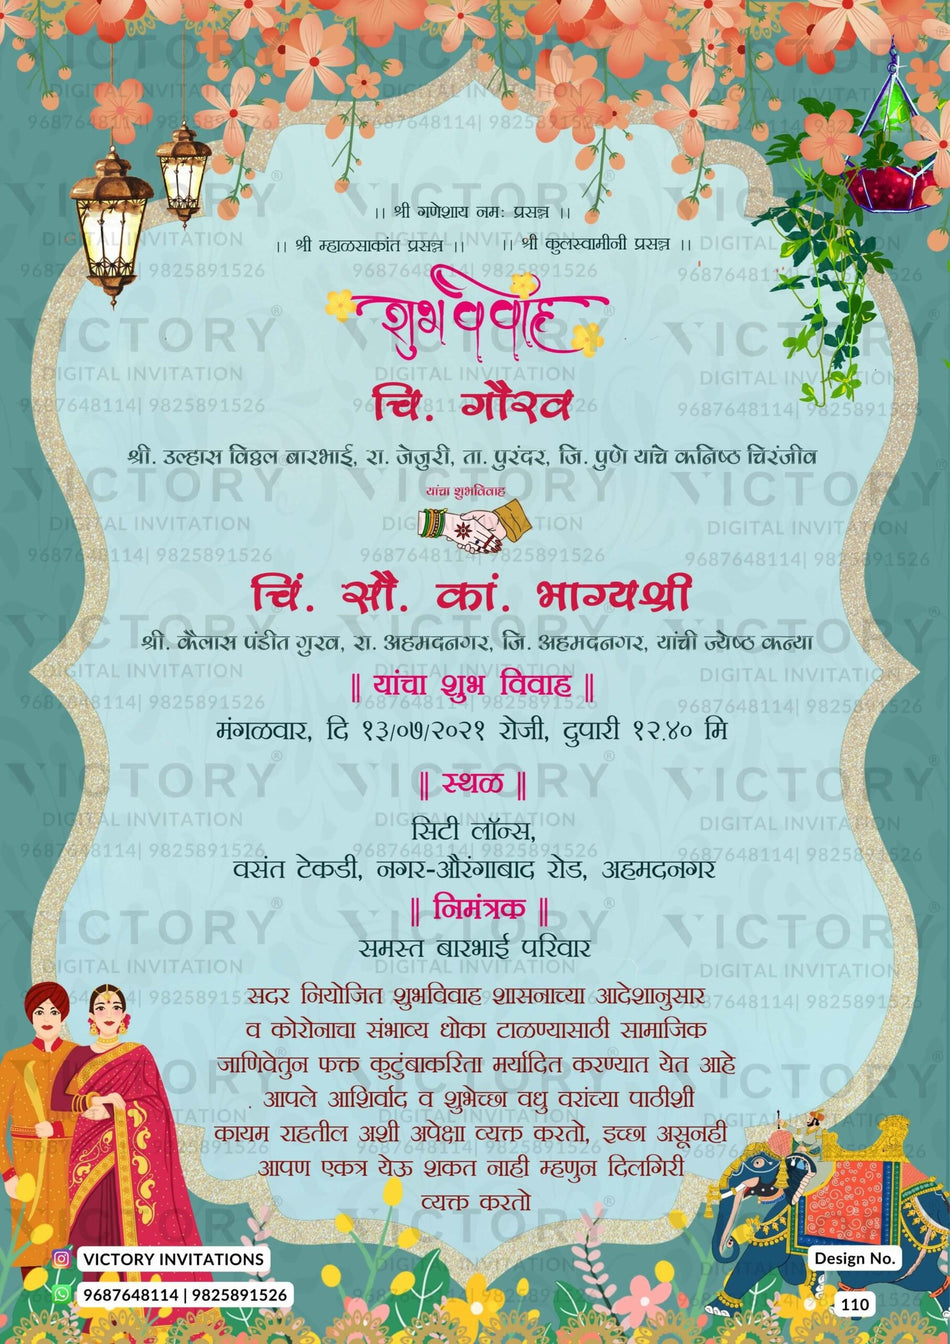 ।। श्री गणेशाय नमः प्रसन्न ।।
।। श्री म्हाळसाकांत प्रसन्न ।। ।। श्री कुलस्वामीनी प्रसन्न ।।
शुभ विवाह
चि. गौरव
श्री. उल्हास विठ्ठल बारभाई, रा. जेजुरी, ता. पुरंदर, जि. पुणे यांचे कनिष्ठ चिरंजीव
यांचा शुभविवाह
चिं. सौ. कां. भाग्यश्री
श्री. कैलास पंडीत गुरव, रा. अहमदनगर, जि. अहमदनगर, यांची ज्येष्ठ कन्या
॥ यांचा शुभ विवाह ॥
मंगळवार, दि १३/०७/२०२१ रोजी, दुपारी १२.४० मि
॥ स्थळ ॥
सिटी लॉन्स,
वसंत टेकडी, नगर-औरंगाबाद रोड, अहमदनगर
॥ निमंत्रक ॥
समस्त बारभाई परिवार
सदर नियोजित शुभविवाह शासनाच्या आदेशानुसार
व कोरोनाचा संभाव्य धोका टाळण्यासाठी सामाजिक
जाणिवेतुन फक्त कुटुंबाकरिता मर्यादित करण्यात येत आहे
आपले आशिर्वाद व शुभेच्छा वधु वरांच्या पाठीशी
कायम राहतील अशी अपेक्षा व्यक्त करतो, इच्छा असूनही
आपण एकत्र येऊ शकत नाही म्हणुन दिलगिरी
व्यक्त करतो
VICTORY INVITATIONS
9687648114 | 9825891526
Design No.
110
VICTORY
DIGITAL INVITATION
9687648114| 9825891526